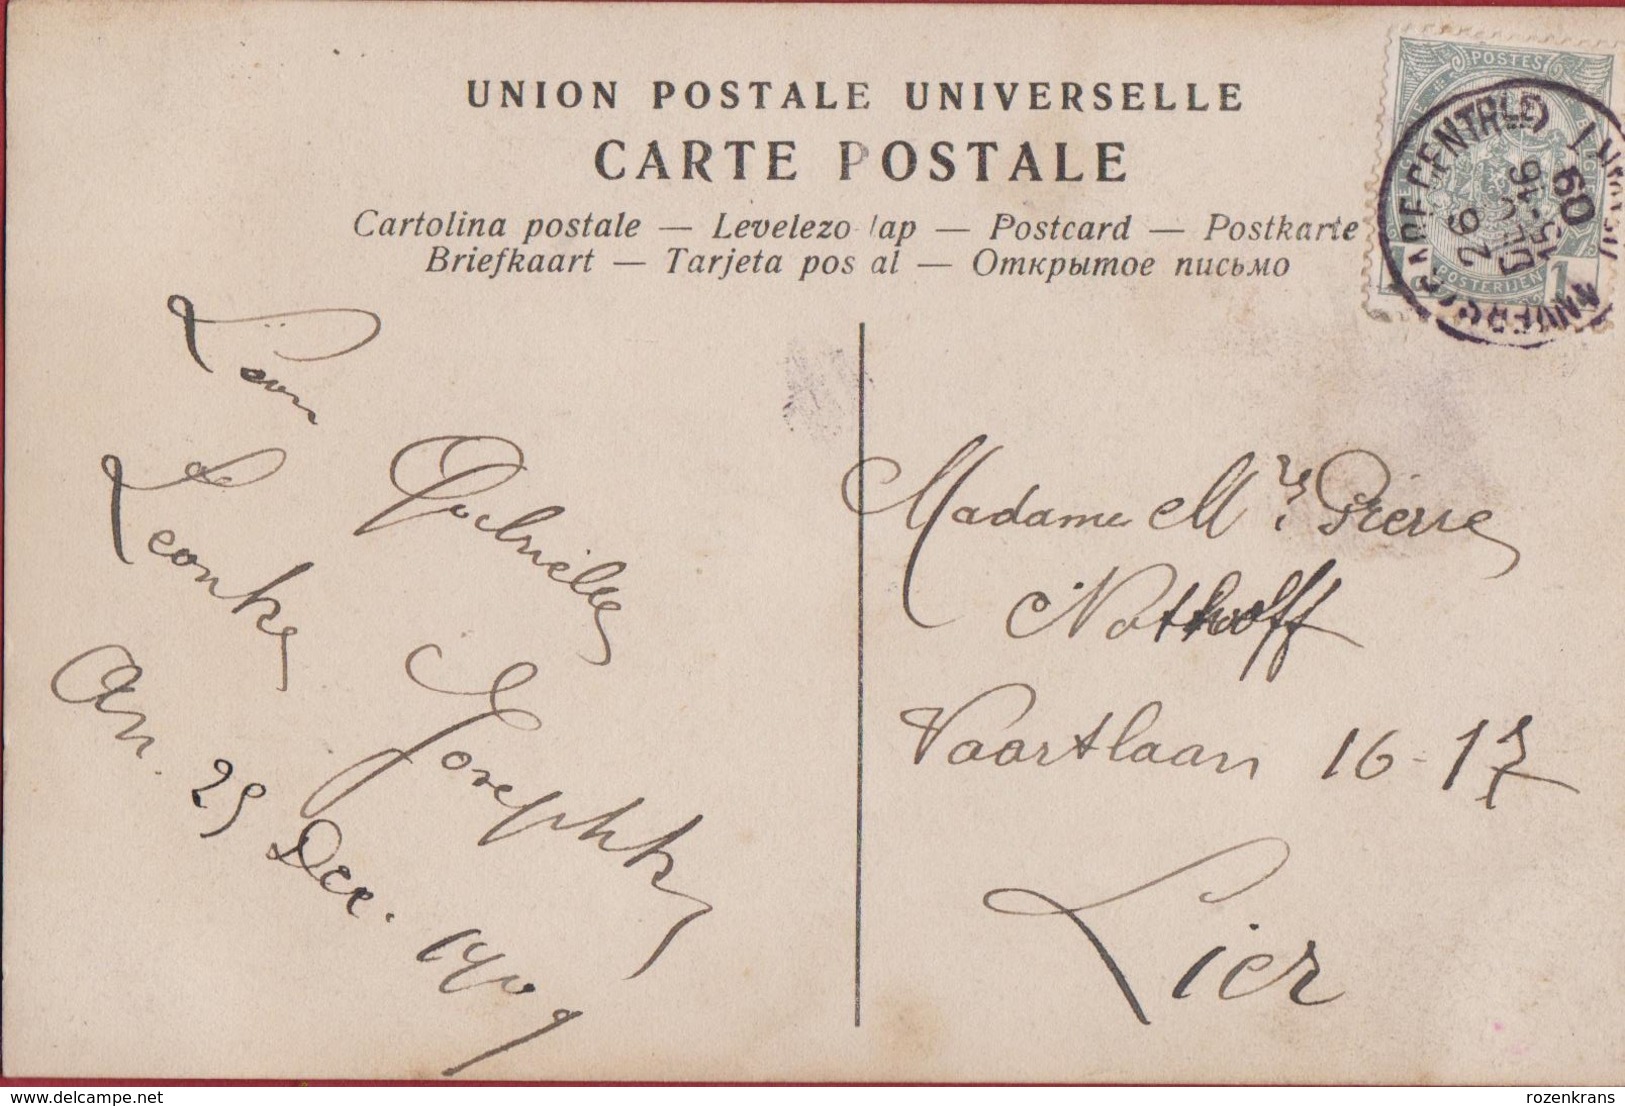 UNION POSTALE UNIVERSELLE
CARTE POSTALE
Cartolina postale — Levelezo lap — Postcard — Postkarte
Briefkaart — Tarjeta pos al — Открытое письмо
POSTES
POSTERIJEN
1
GARE CENTRALE
26
DEC
15-16
09
ANVERS
Léon
Gabrielle
Leonke
Josephke
An. 25 Dec. 1909
Madame Mr Pierre
Nothoff
Vaartlaan 16-17
Lier
delcampe.net
rozenkrans